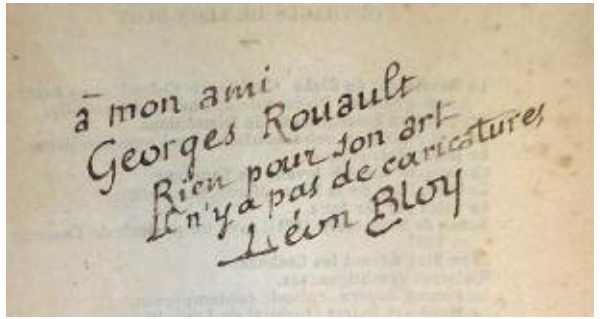 à mon ami
Georges Rouault
Rien pour son art
Il n'y a pas de caricatures
Léon Bloy